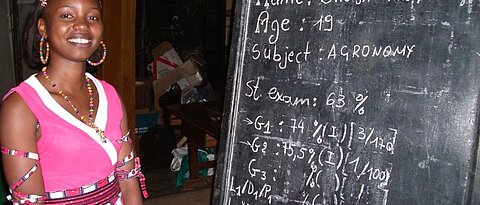 Name:
Age : 19
Subject : AGRONOMY
St exam : 63 %
→ G1 : 74 % (I) [3/176]
→ G2 : 75,5% (I) [1/100]
G3 : % ( ) [ / ]
L1/D1/P1